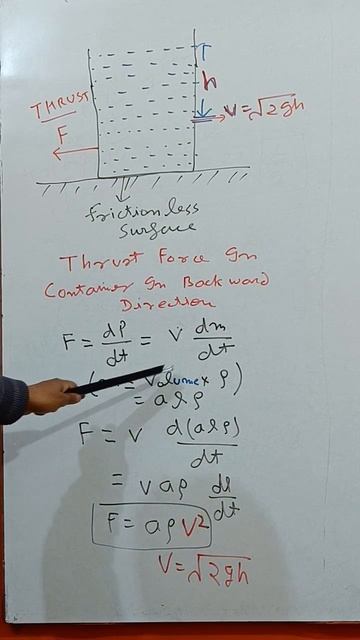 h
V = √2gh
THRUST
F
frictionless
Surface
Thrust Force On
Container On Backward
Direction
F = dP/dt = V dm/dt
= Volume × ρ)
= alρ
F = V d(alρ)/dt
= Vaρ dl/dt
F = aρV²
V = √2gh